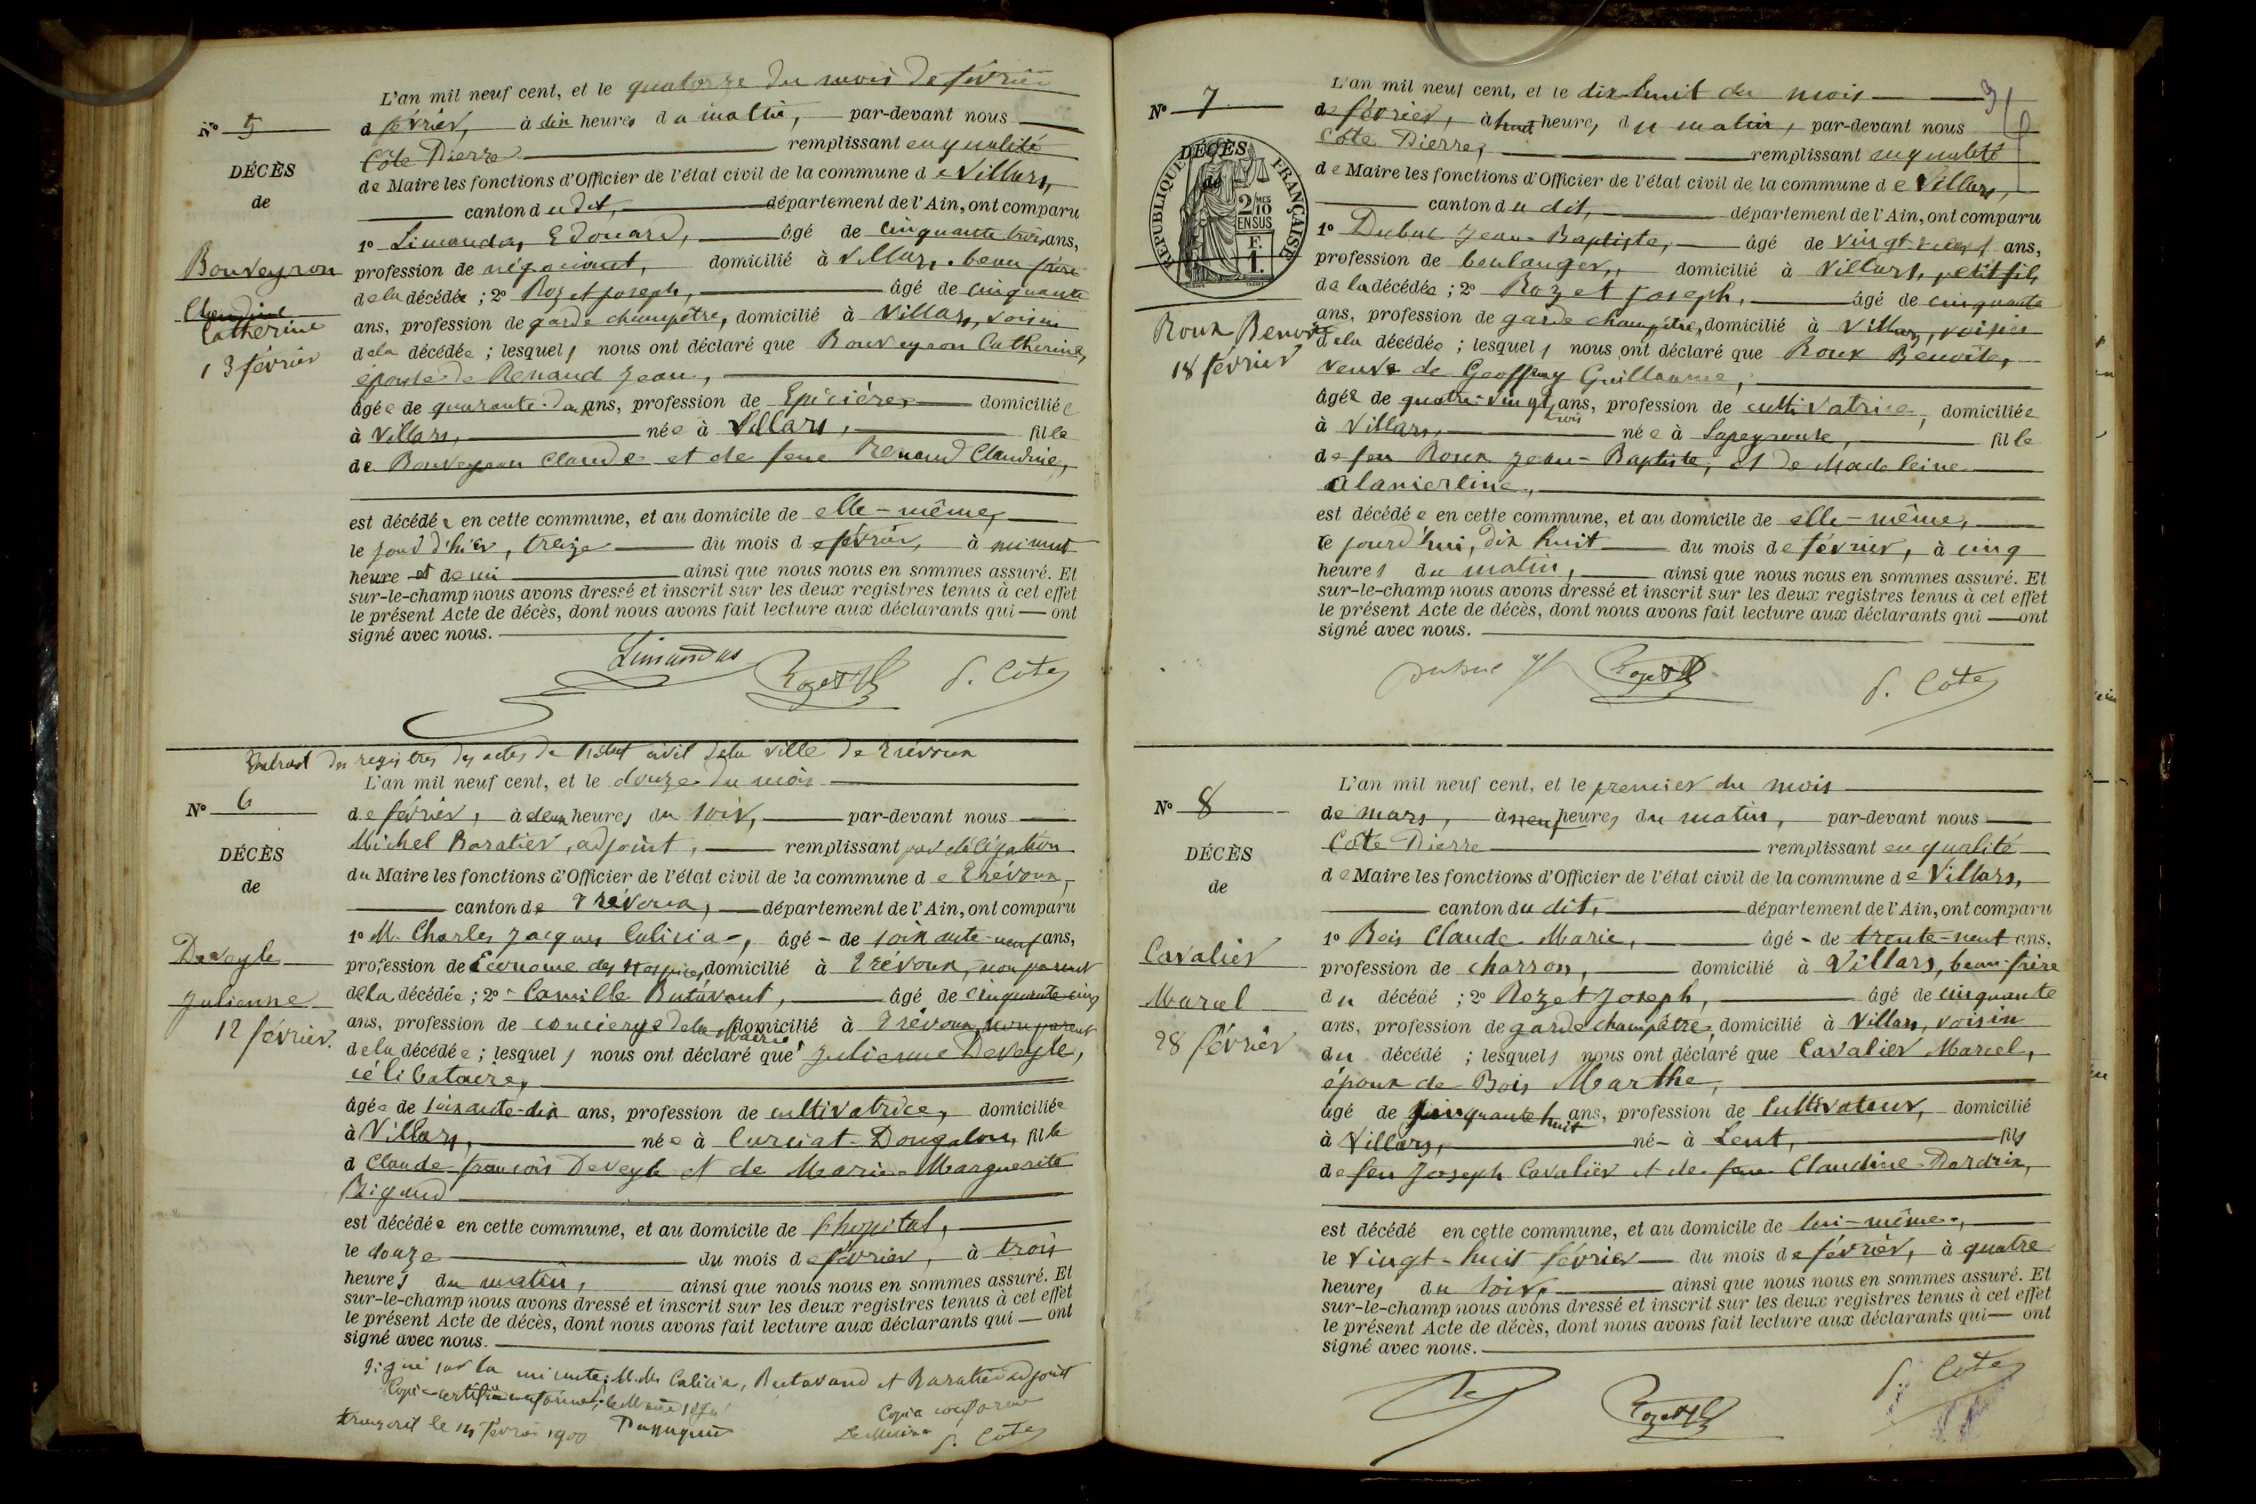 L'an mil neuf cent, et le quatorze du mois de février
N° 5
de février, à dix heures du matin, par-devant nous
Côte Pierre remplissant en qualité
DÉCÈS
de Maire les fonctions d'Officier de l'état civil de la commune de Villars,
de
canton du dit, département de l'Ain, ont comparu
1° Limandas Edouard, âgé de cinquante trois ans,
Bouveyron
profession de négociant, domicilié à Villars, beau frère
de la décédée ; 2° Rozet Joseph, âgé de cinquante
Claudine
Catherine
ans, profession de garde champêtre, domicilié à Villars, voisin
13 février
de la décédée ; lesquels nous ont déclaré que Bouveyron Catherine,
épouse de Renaud Jean,
âgée de quarante-deux ans, profession de Epicière, domiciliée
à Villars, née à Villars, fille
de Bouveyron Claude et de feue Renaud Claudine,
est décédée en cette commune, et au domicile de elle-même,
le jour d'hier, treize du mois de février, à minuit
heure et demi ainsi que nous nous en sommes assuré. Et
sur-le-champ nous avons dressé et inscrit sur les deux registres tenus à cet effet
le présent Acte de décès, dont nous avons fait lecture aux déclarants qui — ont
signé avec nous.
Limandas Rozet P. Côte
Extrait des registres des actes de l'état civil de la ville de Trévoux
L'an mil neuf cent, et le douze du mois
N° 6
de février, à deux heures du soir, par-devant nous
Michel Baratier, adjoint, remplissant par délégation
DÉCÈS
du Maire les fonctions d'Officier de l'état civil de la commune de Trévoux,
de
canton de Trévoux, département de l'Ain, ont comparu
1° M. Charles Jacques Calicia, âgé de soixante-neuf ans,
Deveyle
profession de Econome des Hospices domicilié à Trévoux, non parent
Julienne
de la décédée ; 2° Camille Butavant, âgé de cinquante cinq
12 février.
ans, profession de concierge de la Mairie domicilié à Trévoux, non parent
de la décédée ; lesquels nous ont déclaré que Julienne Deveyle,
célibataire,
âgée de soixante-dix ans, profession de cultivatrice, domiciliée
à Villars, née à Curciat-Dongalon, fille
d Claude-françois Deveyle et de Marie-Marguerite
Rigaud
est décédée en cette commune, et au domicile de l'hopital,
le douze du mois de février, à trois
heures du matin, ainsi que nous nous en sommes assuré. Et
sur-le-champ nous avons dressé et inscrit sur les deux registres tenus à cet effet
le présent Acte de décès, dont nous avons fait lecture aux déclarants qui — ont
signé avec nous.
Signé sur la minute: M. des Calicia, Butavand et Baratier adjoint
Copie certifiée conforme, le Maire
Copie conforme
transcrit le 14 février 1900
Le Maire P. Côte
L'an mil neuf cent, et le dix-huit du mois
N° 7
de février, à huit heures du matin, par-devant nous
Côte Pierre, remplissant en qualité
DÉCÈS
de
RÉPUBLIQUE FRANÇAISE
2/10 EN SUS
F. 1.
de Maire les fonctions d'Officier de l'état civil de la commune de Villars,
canton du dit, département de l'Ain, ont comparu
1° Dubuc Jean-Baptiste, âgé de vingt ans,
profession de boulanger, domicilié à Villars, petit fils
de la décédée ; 2° Rozet Joseph, âgé de cinquante
ans, profession de garde champêtre, domicilié à Villars, voisin
Roux Benoite
18 février
de la décédée ; lesquels nous ont déclaré que Roux Benoite,
veuve de Geoffray Guillaume,
âgée de quatre-vingt trois ans, profession de cultivatrice, domiciliée
à Villars, née à Lapeyrouse, fille
de feu Roux Jean-Baptiste, et de Madeleine
Alamercline,
est décédée en cette commune, et au domicile de elle-même,
le jourd'hui, dix huit du mois de février, à cinq
heures du matin, ainsi que nous nous en sommes assuré. Et
sur-le-champ nous avons dressé et inscrit sur les deux registres tenus à cet effet
le présent Acte de décès, dont nous avons fait lecture aux déclarants qui — ont
signé avec nous.
Dubuc Rozet P. Côte
L'an mil neuf cent, et le premier du mois
N° 8
de mars, à neuf heures du matin, par-devant nous
Côte Pierre remplissant en qualité
DÉCÈS
de Maire les fonctions d'Officier de l'état civil de la commune de Villars,
de
canton du dit, département de l'Ain, ont comparu
1° Bois Claude-Marie, âgé de trente-neuf ans,
Cavalier
profession de charron, domicilié à Villars, beau-frère
Marcel
du décédé ; 2° Rozet Joseph, âgé de cinquante
28 février
ans, profession de garde champêtre, domicilié à Villars, voisin
du décédé ; lesquels nous ont déclaré que Cavalier Marcel,
époux de Bois Marthe,
âgé de cinquante huit ans, profession de Cultivateur, domicilié
à Villars, né à Lent, fils
de feu Joseph Cavalier et de feue Claudine Dardrix,
est décédé en cette commune, et au domicile de lui-même,
le vingt-huit février du mois de février, à quatre
heures du soir, ainsi que nous nous en sommes assuré. Et
sur-le-champ nous avons dressé et inscrit sur les deux registres tenus à cet effet
le présent Acte de décès, dont nous avons fait lecture aux déclarants qui — ont
signé avec nous.
Rozet P. Côte